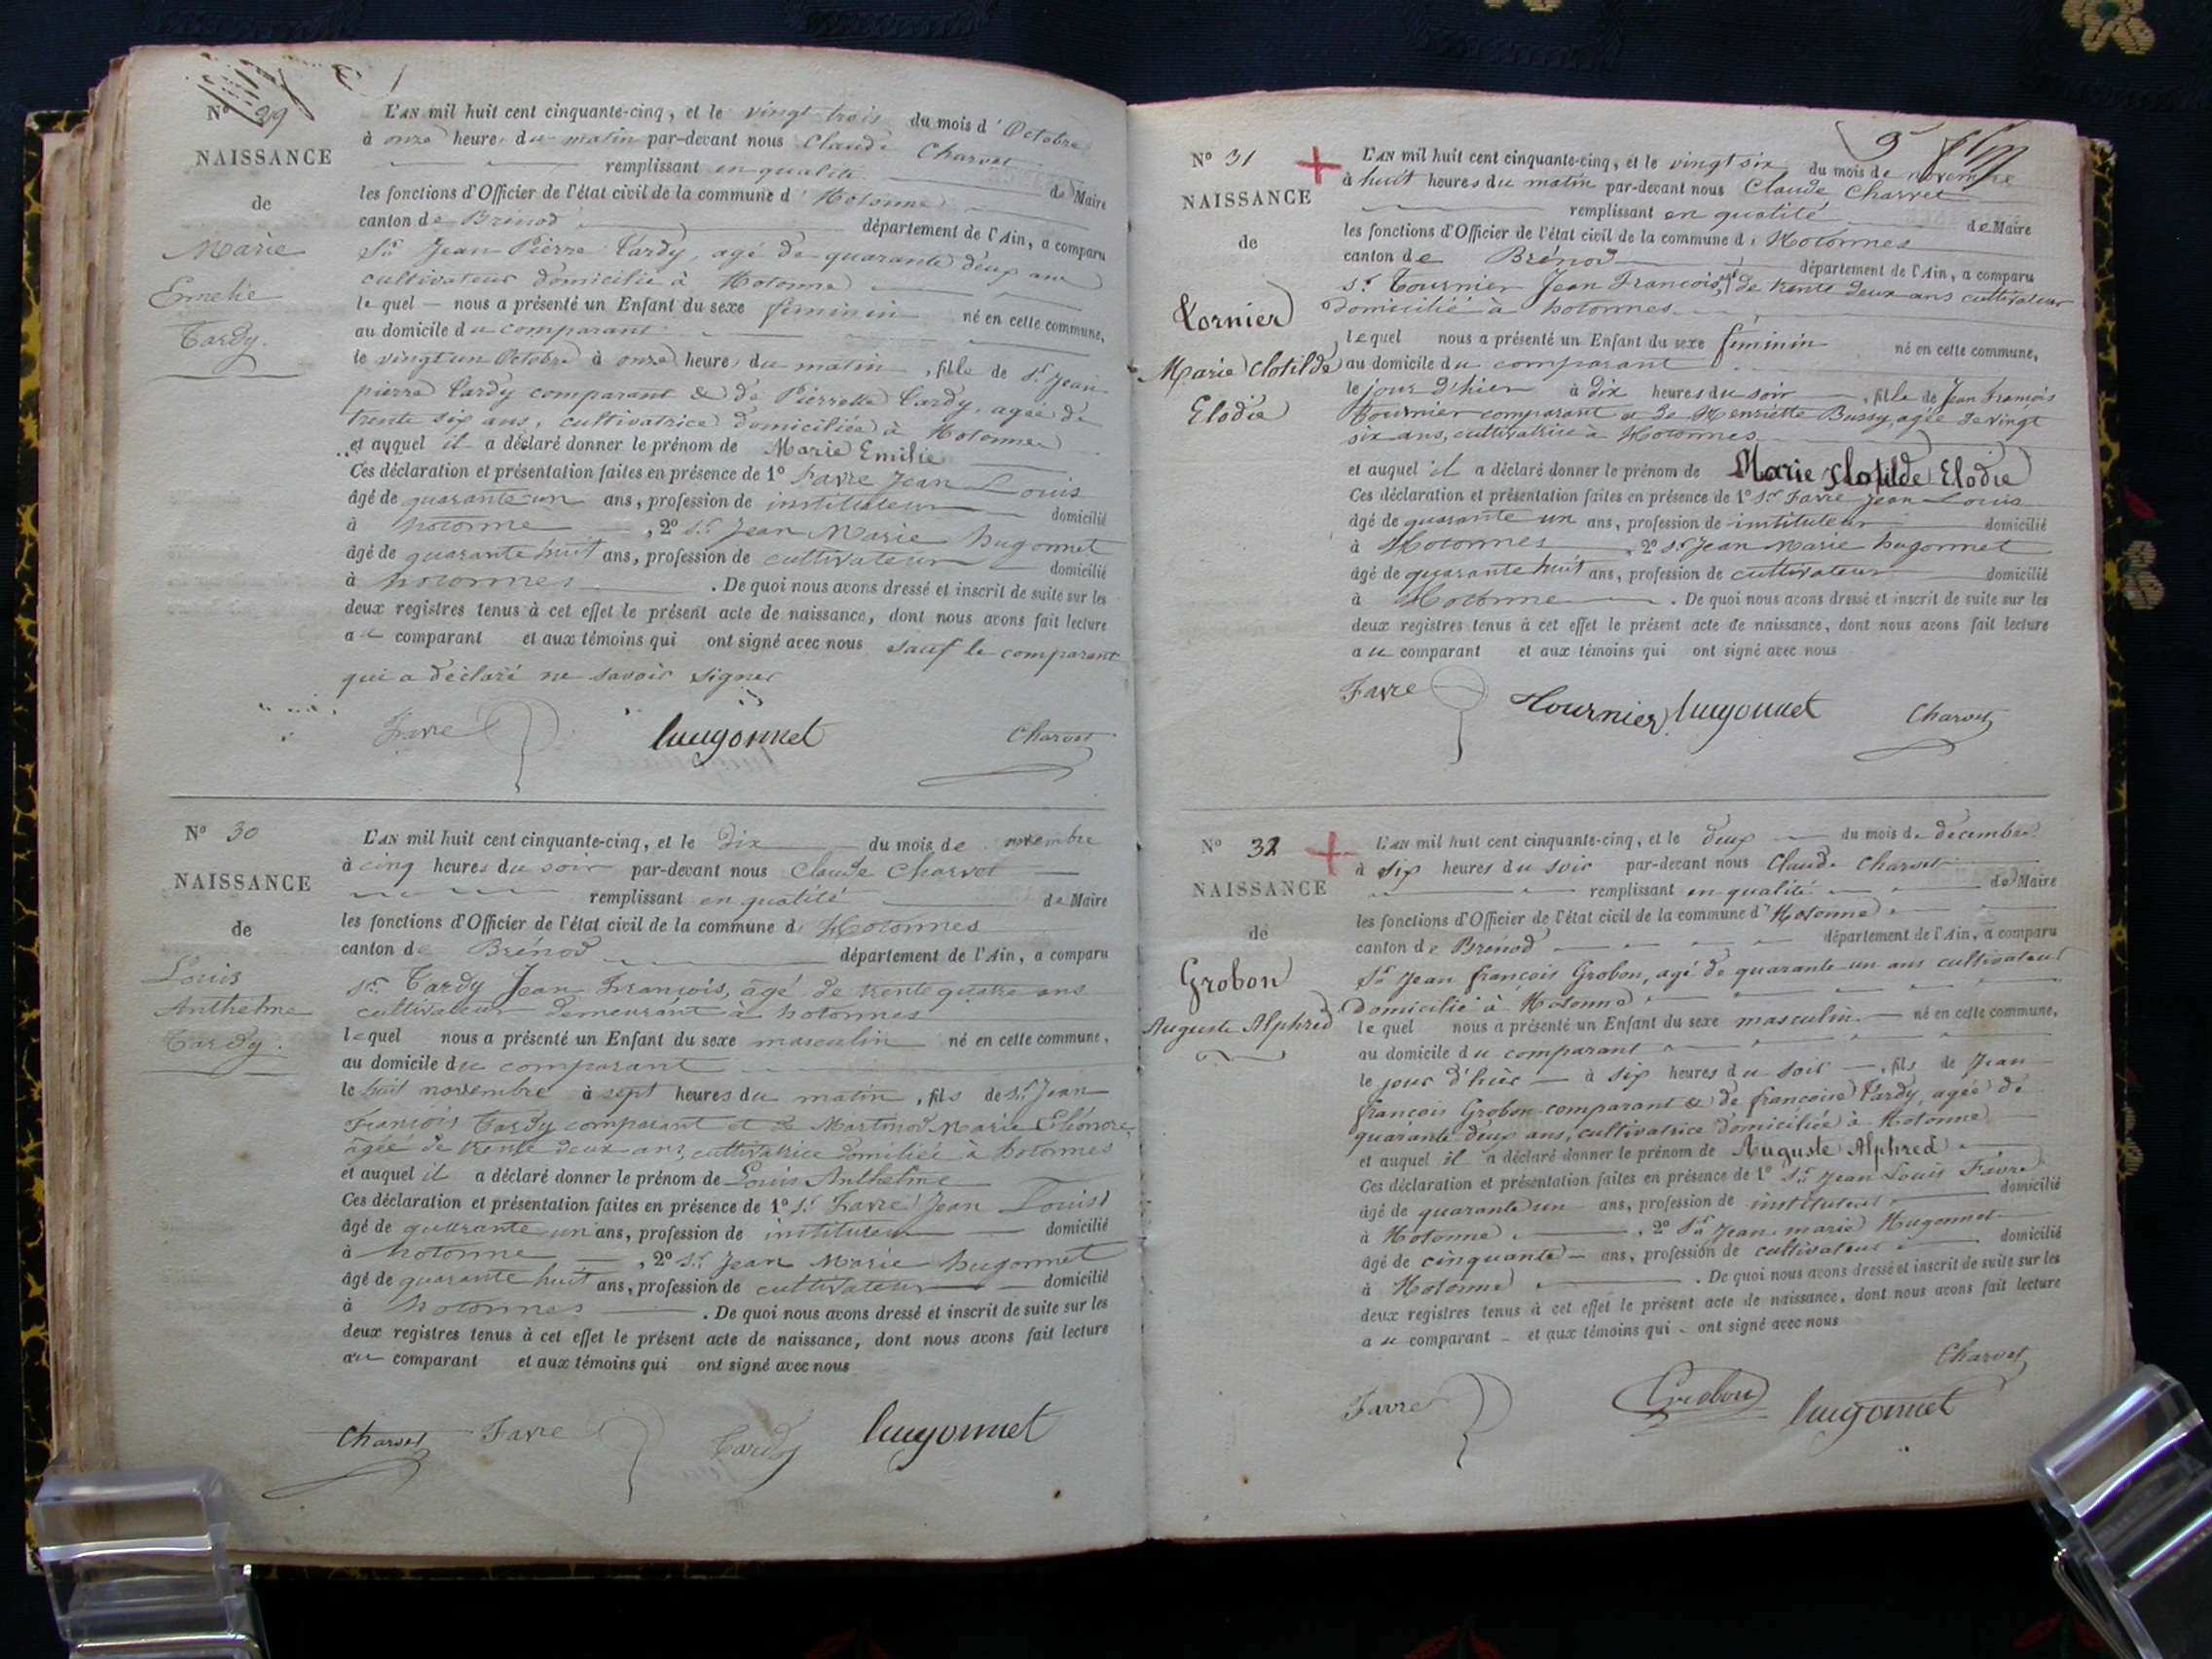 N° 29
NAISSANCE
de
Marie
Emelie
Tardy.
L'AN mil huit cent cinquante-cinq, et le vingt trois du mois d'Octobre
à onze heures du matin par-devant nous Claude Charvet
remplissant en qualité de Maire
les fonctions d'Officier de l'état civil de la commune d'Hotonnes
canton de Brénod département de l'Ain, a comparu
Sr Jean Pierre Tardy, agé de quarante deux ans
cultivateur domicilié à Hotonne
le quel nous a présenté un Enfant du sexe féminin né en cette commune,
au domicile du comparant
le vingt un Octobre à onze heures du matin, fille de Sr Jean
pierre Tardy comparant & de Pierrette Tardy, agée de
trente six ans, cultivatrice domiciliée à Hotonne
et auquel il a déclaré donner le prénom de Marie Emilie
Ces déclaration et présentation faites en présence de 1° Favre Jean Louis
âgé de quarante un ans, profession de instituteur domicilié
à hotonne, 2° Sr Jean Marie hugonnet
âgé de quarante huit ans, profession de cultivateur domicilié
à hotonnes. De quoi nous avons dressé et inscrit de suite sur les
deux registres tenus à cet effet le présent acte de naissance, dont nous avons fait lecture
au comparant et aux témoins qui ont signé avec nous sauf le comparant
qui a déclaré ne savoir signer
Favre hugonnet Charvet
N° 30
NAISSANCE
de
Louis
Anthelme
Tardy.
L'AN mil huit cent cinquante-cinq, et le dix du mois de novembre
à cinq heures du soir par-devant nous Claude Charvet
remplissant en qualité de Maire
les fonctions d'Officier de l'état civil de la commune d'Hotonnes
canton de Brénod département de l'Ain, a comparu
Sr Tardy Jean François, âgé de trente quatre ans
cultivateur demeurant à hotonnes
lequel nous a présenté un Enfant du sexe masculin né en cette commune,
au domicile du comparant
le huit novembre à sept heures du matin, fils de Sr Jean
François Tardy comparant et de Martinod Marie Eléonore
âgée de trente deux ans, cultivatrice domiliée à hotonnes
et auquel il a déclaré donner le prénom de Louis Anthelme
Ces déclaration et présentation faites en présence de 1° Sr Favre Jean Louis
âgé de quarante un ans, profession de instituteur domicilié
à hotonne, 2° Sr Jean Marie hugonnet
âgé de quarante huit ans, profession de cultivateur domicilié
à hotonnes. De quoi nous avons dressé et inscrit de suite sur les
deux registres tenus à cet effet le présent acte de naissance, dont nous avons fait lecture
au comparant et aux témoins qui ont signé avec nous
Charvet Favre Tardy hugonnet
N° 31
NAISSANCE
de
Tornier
Marie Clotilde
Elodie
L'AN mil huit cent cinquante-cinq, et le vingt six du mois de novembre
à huit heures du matin par-devant nous Claude Charvet
remplissant en qualité de Maire
les fonctions d'Officier de l'état civil de la commune d'Hotonnes
canton de Brénod département de l'Ain, a comparu
Sr Tournier Jean François, agé de trente deux ans cultivateur
domicilié à hotonnes
lequel nous a présenté un Enfant du sexe féminin né en cette commune,
au domicile du comparant
le jour d'hier à dix heures du soir, fille de Jean François
Tournier comparant et de Henriette Bussy, agée de vingt
six ans, cultivatrice à Hotonnes
et auquel il a déclaré donner le prénom de Marie Clotilde Elodie
Ces déclaration et présentation faites en présence de 1° Sr Favre Jean Louis
âgé de quarante un ans, profession de instituteur domicilié
à Hotonnes, 2° Sr Jean Marie hugonnet
âgé de quarante huit ans, profession de cultivateur domicilié
à Hotonne. De quoi nous avons dressé et inscrit de suite sur les
deux registres tenus à cet effet le présent acte de naissance, dont nous avons fait lecture
au comparant et aux témoins qui ont signé avec nous
Favre Tournier hugonnet Charvet
N° 32
NAISSANCE
de
Grobon
Auguste Alphred
L'AN mil huit cent cinquante-cinq, et le deux du mois de décembre
à six heures du soir par-devant nous Claude Charvet
remplissant en qualité de Maire
les fonctions d'Officier de l'état civil de la commune d'Hotonne
canton de Brénod département de l'Ain, a comparu
Sr Jean françois Grobon, agé de quarante un ans cultivateur
domicilié à Hotonne
le quel nous a présenté un Enfant du sexe masculin né en cette commune,
au domicile du comparant
le jour d'hier à six heures du soir, fils de Jean
françois Grobon comparant & de françoise Tardy, agée de
quarante deux ans, cultivatrice domiciliée à Hotonne
et auquel il a déclaré donner le prénom de Auguste Alphred
Ces déclaration et présentation faites en présence de 1° Sr Jean Louis Favre
âgé de quarante un ans, profession de instituteur domicilié
à Hotonne, 2° Sr Jean marie Hugonnet
âgé de cinquante ans, profession de cultivateur domicilié
à Hotonne. De quoi nous avons dressé et inscrit de suite sur les
deux registres tenus à cet effet le présent acte de naissance, dont nous avons fait lecture
au comparant et aux témoins qui ont signé avec nous
Charvet
Favre Grobon hugonnet